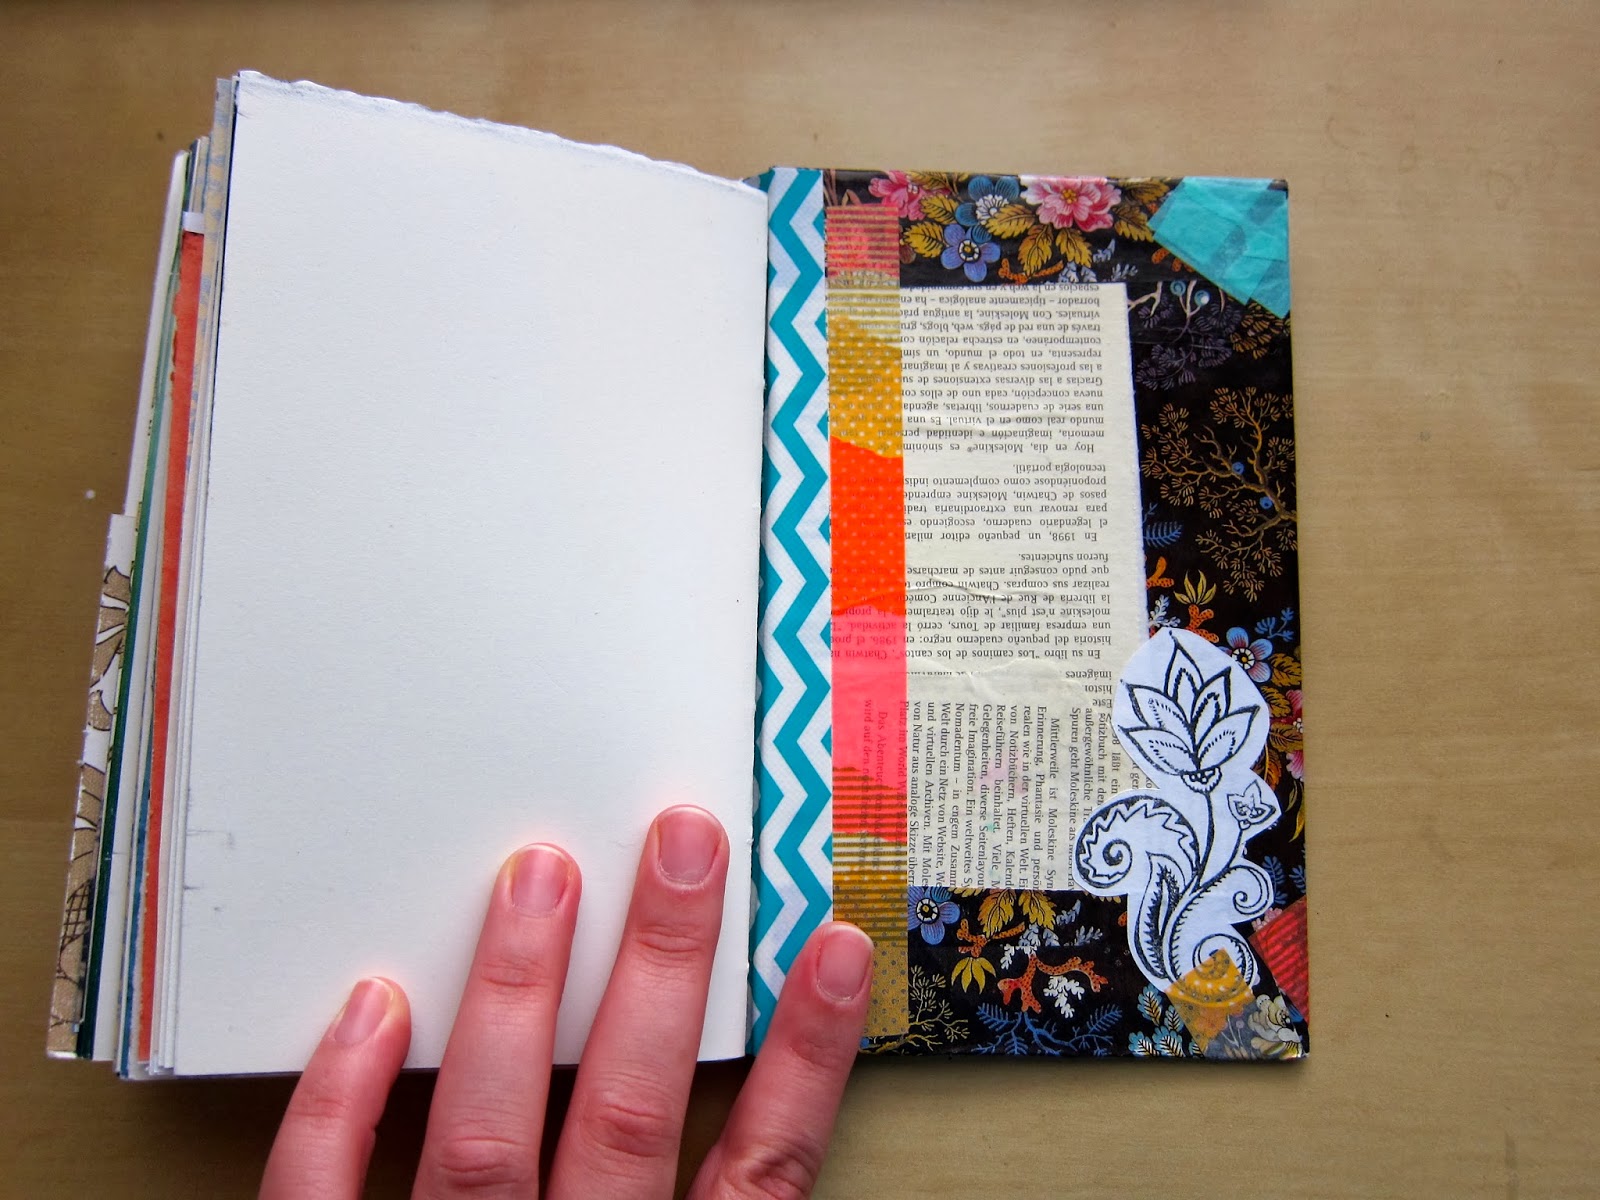 Este
histor
imágenes
En su libro "Los caminos de los cantos", Chatwin
historia del pequeño cuaderno negro: en 1986, el
una empresa familiar de Tours, cerró la actividad.
moleskine n'est plus", le dijo teatralmente la
la librería de Rue de l'Ancienne Comédie
realizar sus compras. Chatwin compró
que pudo conseguir antes de marcharse
fueron suficientes.
En 1998, un pequeño editor milan
el legendario cuaderno, escogiendo e
para renovar una extraordinaria tradi
pasos de Chatwin, Moleskine emprende
proponiéndose como complemento indis
tecnología portátil.
Hoy en día, Moleskine® es sinónim
memoria, imaginación e identidad per
mundo real como en el virtual. Es una
una serie de cuadernos, libretas, agenda
nueva concepción, cada uno de ellos co
Gracias a las diversas extensiones de su
a las profesiones creativas y al imaginar
representa, en todo el mundo, un sím
contemporáneo, en estrecha relación con
través de una red de págs. web, blogs, gru
virtuales. Con Moleskine, la antigua prác
borrador – típicamente analógica – ha en
espacios en la web y en sus comunidad
läßt ein
otizbuch mit den
außergewöhnliche Tr
Spuren geht Moleskine als
Mittlerweile ist Moleskine Syn
Erinnerung, Phantasie und persön
realen wie in der virtuellen Welt. Ei
von Notizbüchern, Heften, Kalend
Reiseführern beinhaltet. Viele M
Gelegenheiten, diverse Seitenlayou
freie Imagination. Ein weltweites Sy
Nomadentum – in engem Zusamm
Welt durch ein Netz von Website, We
und virtuellen Archiven. Mit Moles
von Natur aus analoge Skizze überr
Platz im World Wi
Das Abenteu
wird auf den